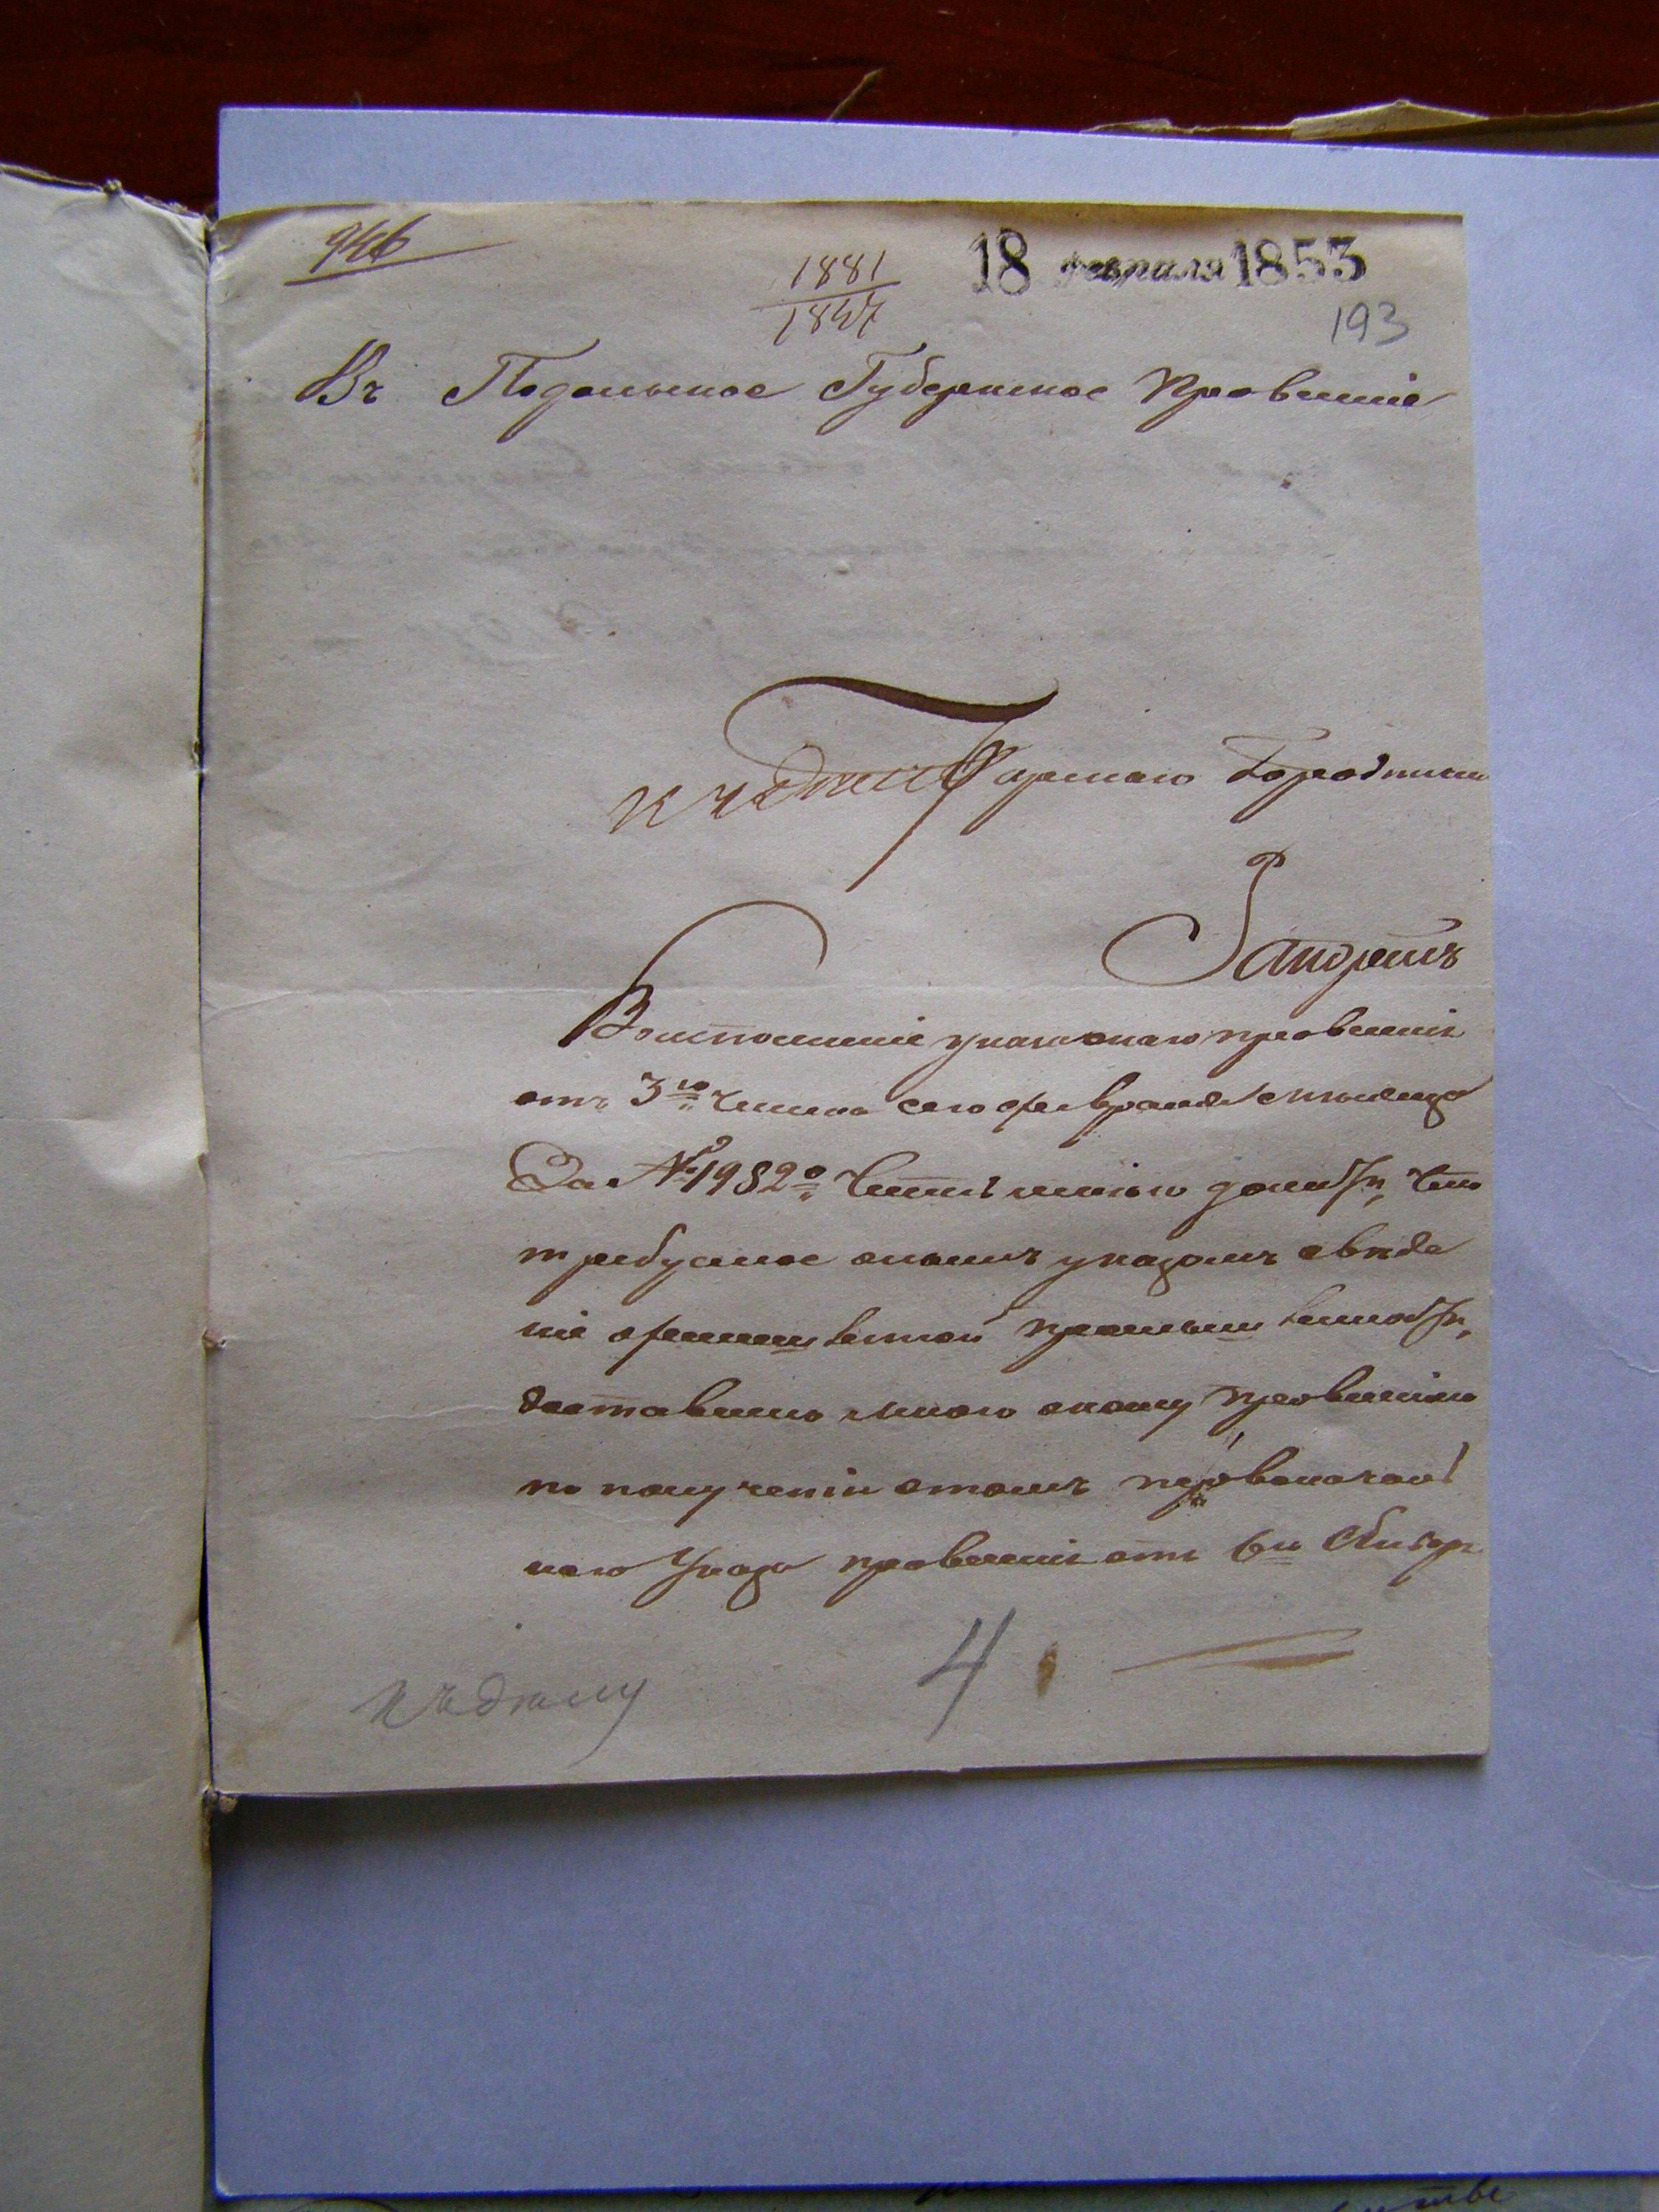 946
1881
1847
18 февраля 1853
193
Въ Подольское Губернское Правленіе
Къ дѣлу
Барского Городничаго
Рапортъ
Во исполненіе указа онаго правленія
отъ 3го числа сего февраля мѣсяца
За № 1982м честь имѣю донести, что
требуемое онымъ указомъ свѣде
ніе
доставлено мною оному правленію
по полученіи о томъ первоначаль
наго Указа правленія отъ 6го Октябр
4
къ дѣлу